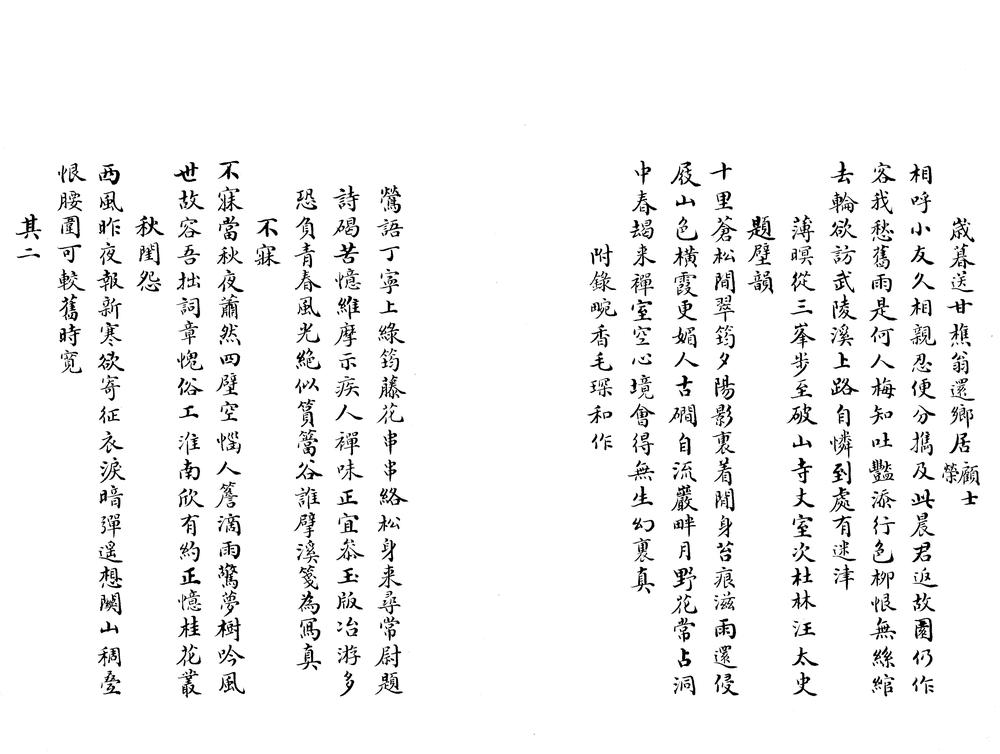 歲暮送甘樵翁還鄉居 顧士榮
相呼小友久相親忍便分攜及此晨君返故園仍作
客我愁舊雨是何人梅知吐豔添行色柳恨無絲綰
去輪欲訪武陵溪上路自憐到處有迷津
薄暝從三峯步至破山寺丈室次杜林汪太史
題壁韻
十里蒼松間翠筠夕陽影裏着閒身苔痕滋雨還侵
屐山色橫霞更媚人古磵自流巖畔月野花常占洞
中春朅来禪室空心境會得無生幻裏真
附錄畹香毛琛和作
鶯語丁寧上綠筠藤花串串絡松身来尋常尉題
詩碣苦憶維摩示疾人禪味正宜叅玉版冶游多
恐負青春風光絶似篔簹谷誰擘溪箋為寫真
不寐
不寐當秋夜蕭然四壁空惱人簷滴雨驚夢樹吟風
世故容吾拙詞章愧俗工淮南欣有約正憶桂花叢
秋閨怨
西風昨夜報新寒欲寄征衣淚暗彈遥想關山稠疊
恨腰圍可較舊時寬
其二